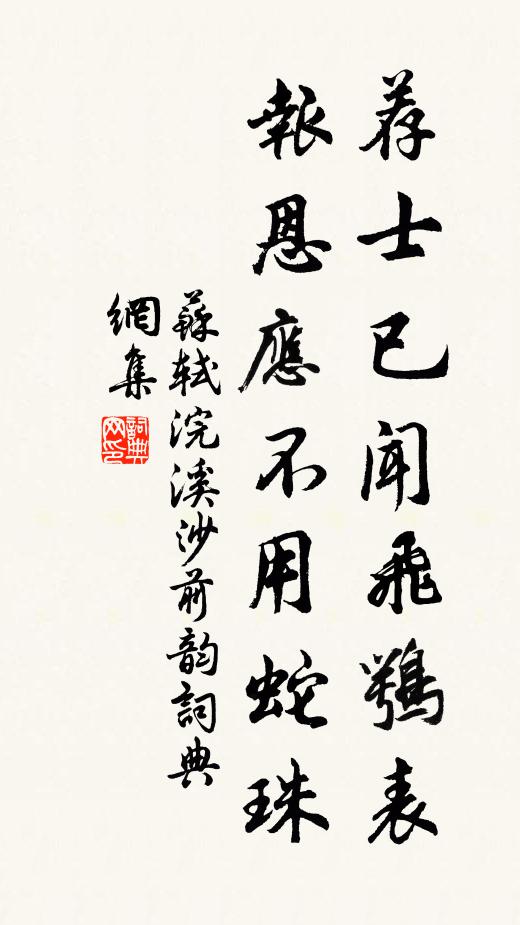 荐士已闻飛鶚表
報恩應不用蛇珠
蘇軾浣溪沙前韵詞典
網集
詞典
网印